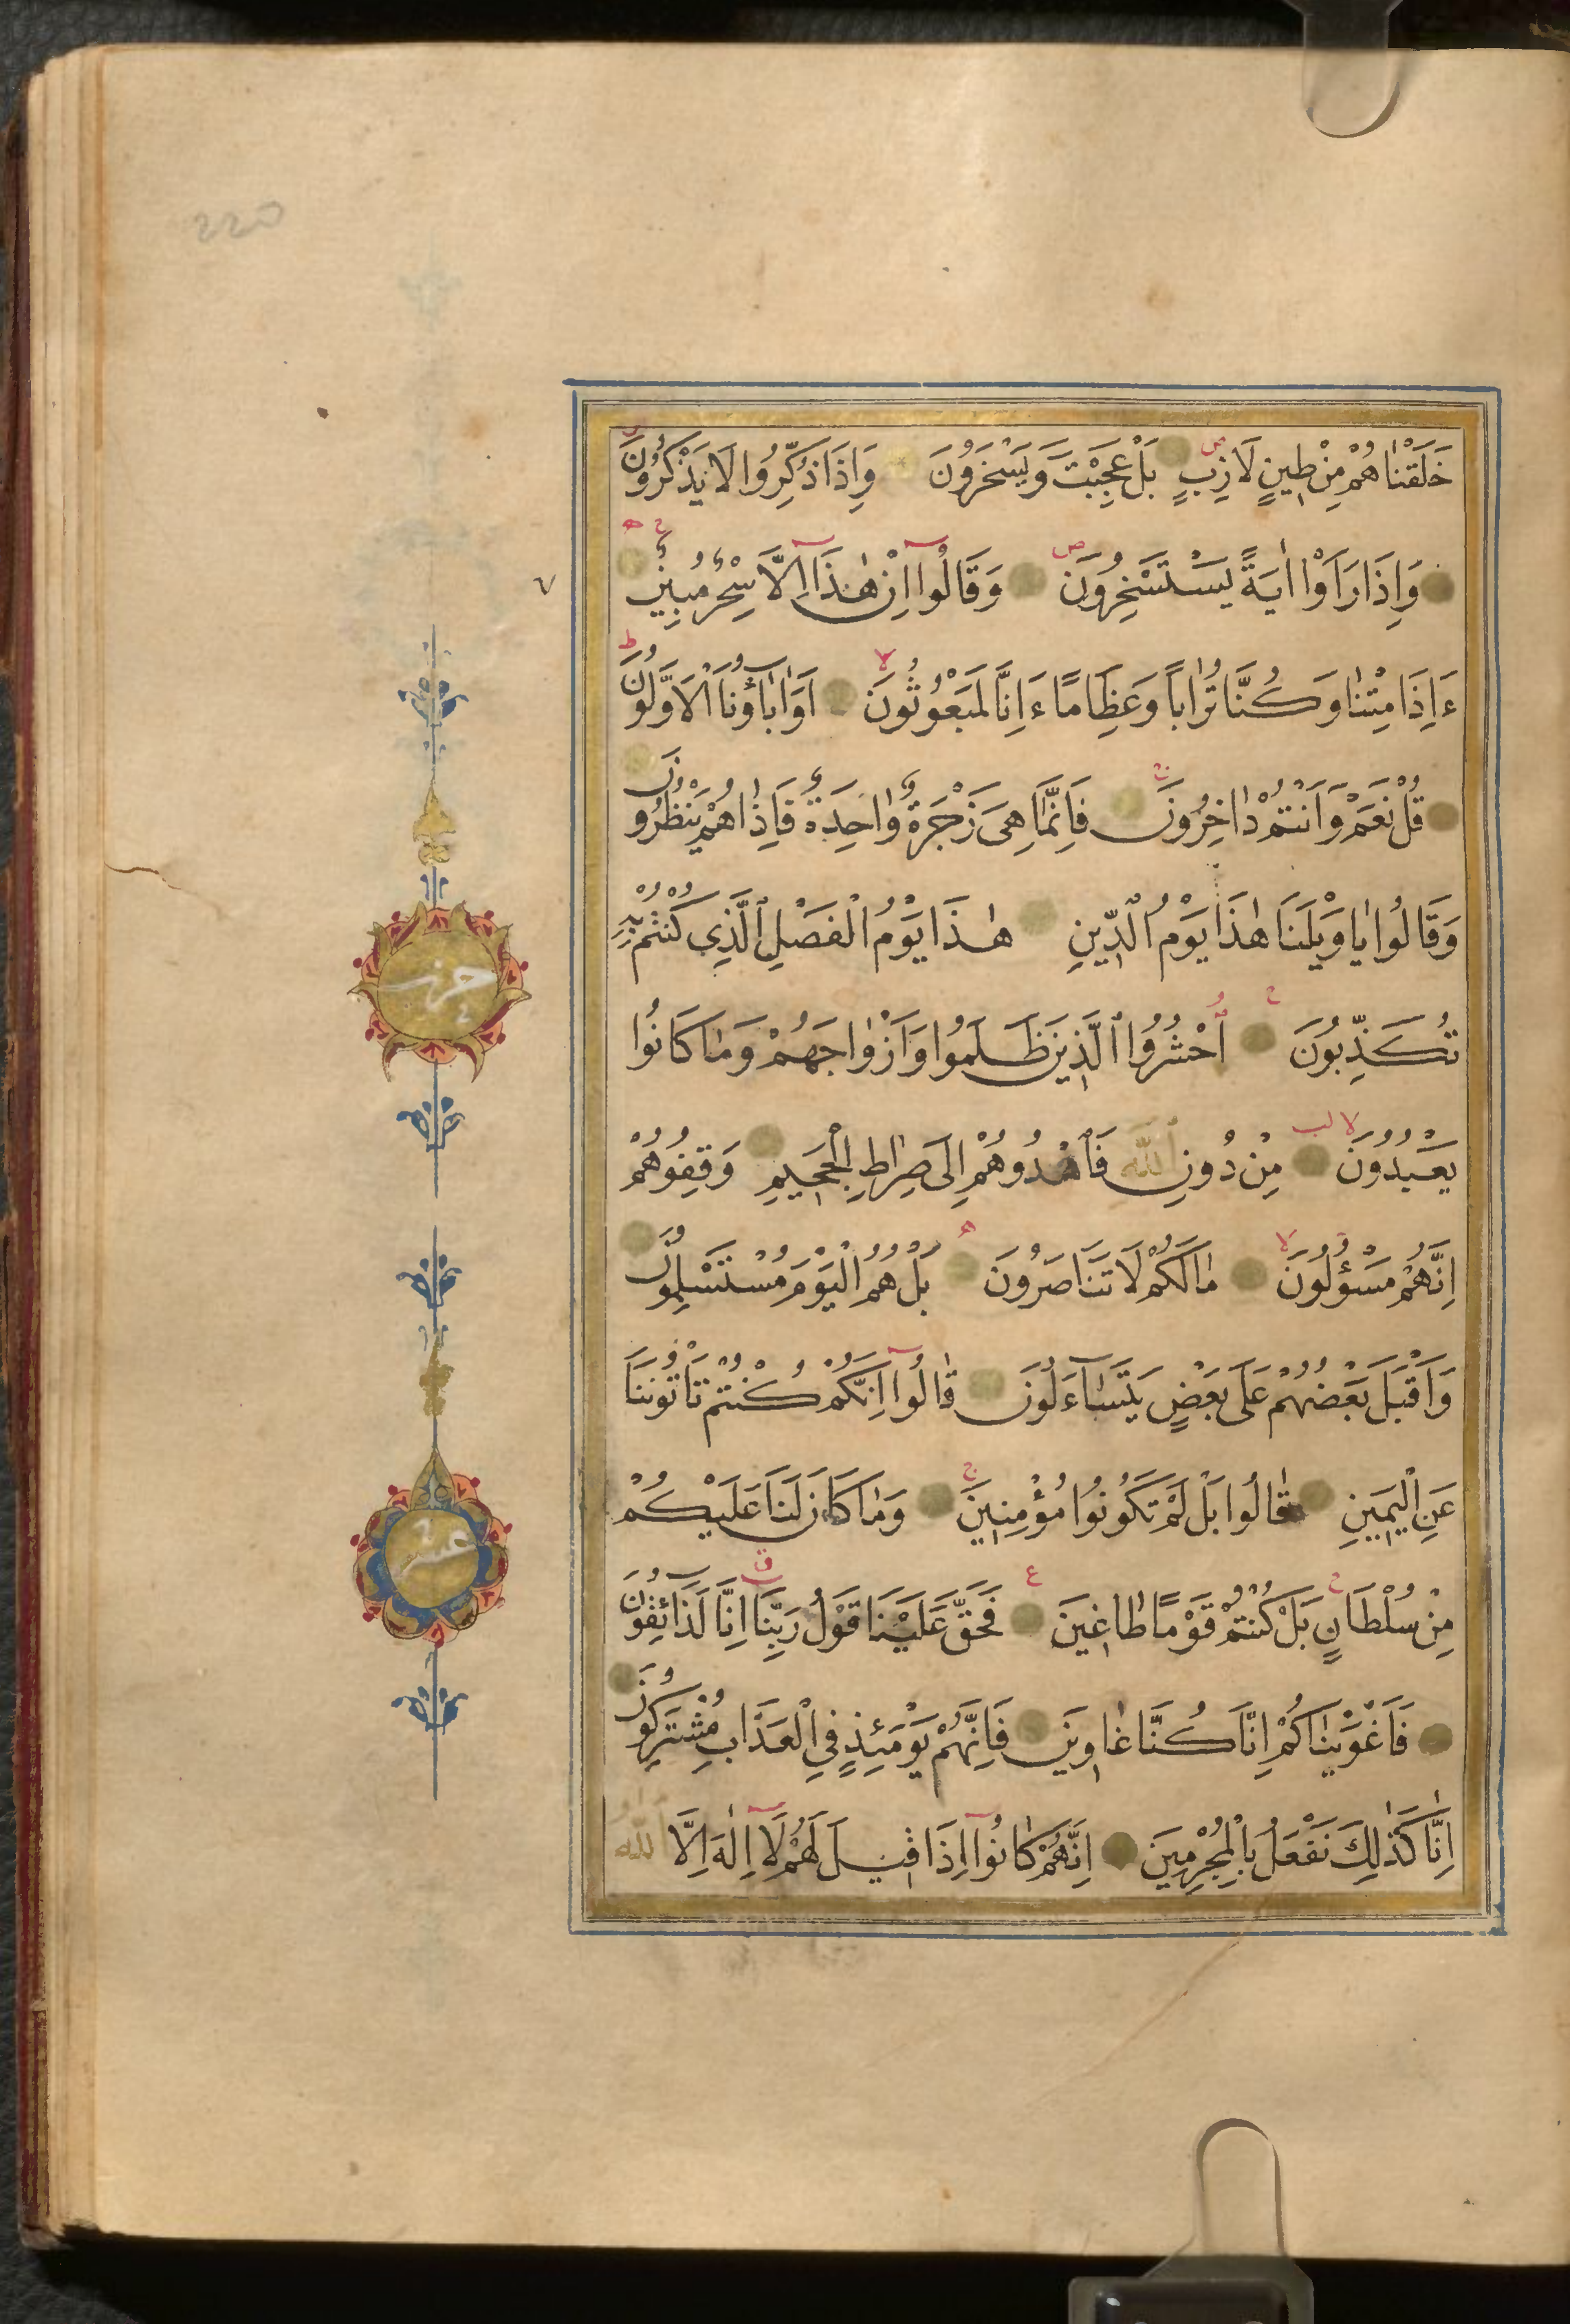 خَلَقْنٰاهُمْ مِنْ طِينٍ لَازِبٍ بَلْ عَجِبْتَ وَيَسْخَرُونَ وَاِذَا ذُكِّرُوا لَا يَذْكُرُونَ
وَاِذَا رَاَوْا اٰيَةً يَسْتَسْخِرُونَ وَقَالُوا اِنْ هٰذَا اِلَّا سِحْرٌ مُبِينٌ
ءَاِذَا مِتْنٰا وَكُنَّا تُرٰاباً وَعِظَامًا ءَاِنَّا لَمَبْعُوثُونَ اَوَاٰبٰاؤُنَا الْاَوَّلُونَ
قُلْ نَعَمْ وَاَنْتُمْ دٰاخِرُونَ فَاِنَّمَا هِىَ زَجْرَةٌ وٰاحِدَةٌ فَاِذٰا هُمْ يَنْظُرُونَ
وَقَالُوا يٰا وَيْلَنَا هٰذَا يَوْمُ الدِّينِ هٰذَا يَوْمُ الْفَصْلِ الَّذِي كُنْتُمْ بِهِ
تُكَذِّبُونَ اُحْشُرُوا الَّذِينَ ظَلَمُوا وَاَزْوٰاجَهُمْ وَمٰا كَانُوا
يَعْبُدُونَ مِنْ دُونِ اللّٰهِ فَاهْدُوهُمْ اِلَى صِرٰاطِ الْجَحِيمِ وَقِفُوهُمْ
اِنَّهُمْ مَسْؤُلُونَ مٰا لَكُمْ لَا تَنَاصَرُونَ بَلْ هُمُ الْيَوْمَ مُسْتَسْلِمُونَ
وَاَقْبَلَ بَعْضُهُمْ عَلَى بَعْضٍ يَتَسٰاءَلُونَ قٰالُوا اِنَّكُمْ كُنْتُمْ تَاْتُونَنَا
عَنِ الْيَمِينِ قٰالُوا بَلْ لَمْ تَكُونُوا مُؤْمِنِينَ وَمٰا كَانَ لَنَا عَلَيْكُمْ
مِنْ سُلْطَانٍ بَلْ كُنْتُمْ قَوْمًا طٰاغِينَ فَحَقَّ عَلَيْنَا قَوْلُ رَبِّنَا اِنَّا لَذَائِقُونَ
فَاَغْوَيْنٰاكُمْ اِنَّا كُنَّا غٰاوِينَ فَاِنَّهُمْ يَوْمَئِذٍ فِي الْعَذَابِ مُشْتَرِكُونَ
اِنَّا كَذٰلِكَ نَفْعَلُ بِالْمُجْرِمِينَ اِنَّهُمْ كٰانُوا اِذَا قِيلَ لَهُمْ لَا اِلٰهَ اِلَّا اللّٰهُ
حزب
عشر